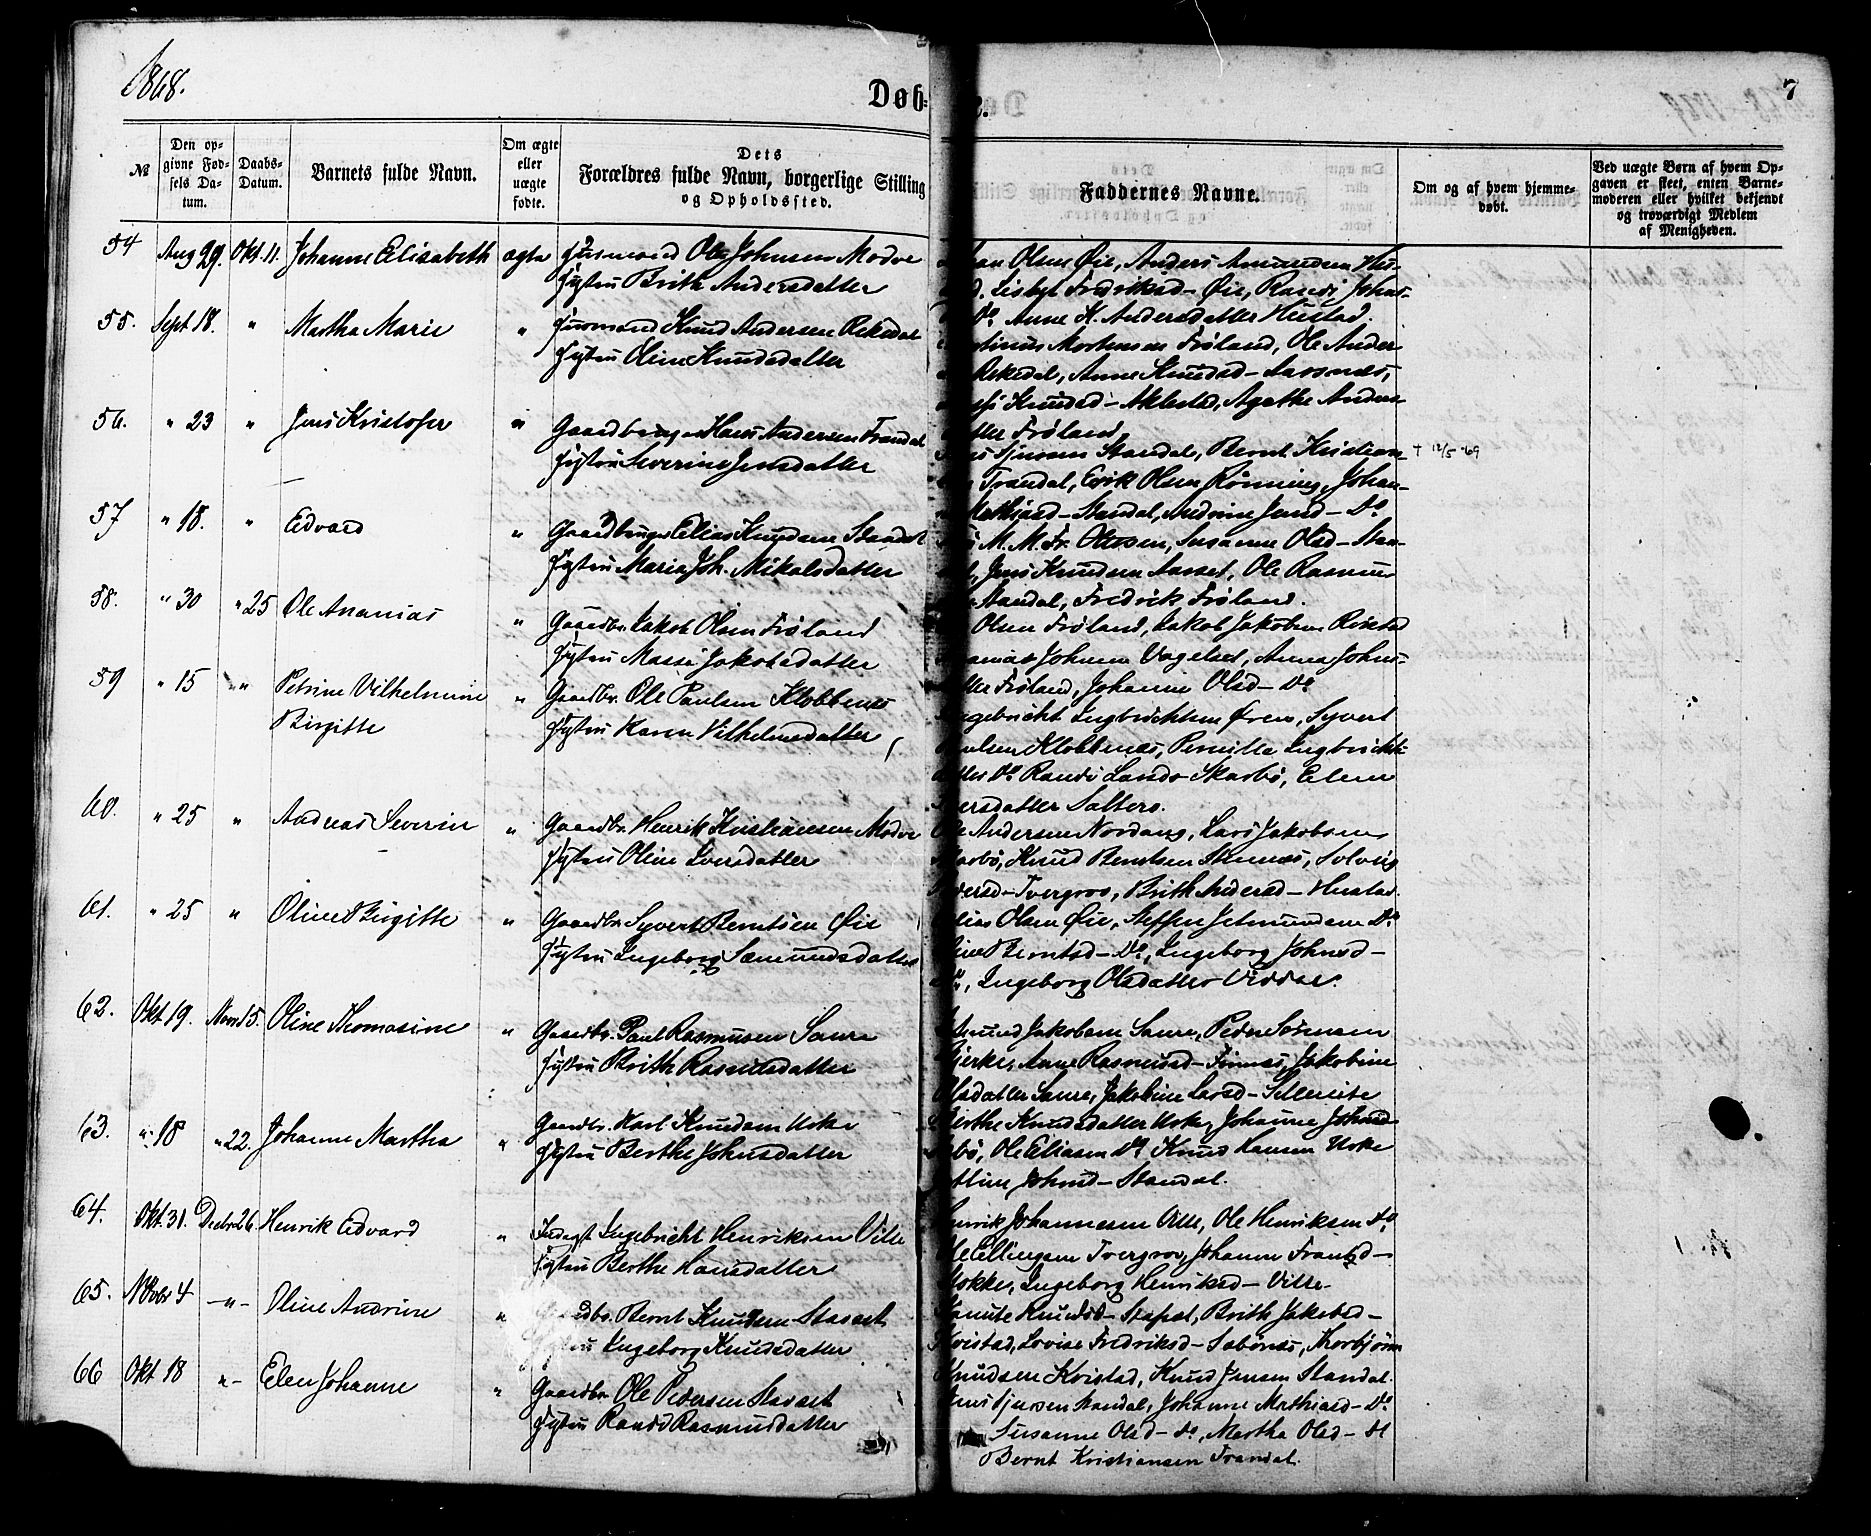 1868.
Døb=
e.
7
№
Den op-
givne Fød-
sels Da-
tum.
Daabs-
Datum.
Barnets fulde Navn.
Om ægte
eller
uægte
fødte.
Dets
Forældres fulde Navn, borgerlige Stilling
og Opholdssted.
Faddernes Navne.
Om og af hvem hjemme-
døbt.
Ved uægte Børn af hvem Op-
gaven er skeet, enten Barne-
moderen eller hvilket bekjendt
og troværdigt Medlem
af Menigheden.
54 Aug 29. Okt. 11. Johanne Elisabeth ægte Huusmand Ole Johnsen Modve
Hustru Brith Andersdatter
Olsen Øie, Anders Amundsen Hu-
Lisbet Fredriksd- Øie, Randi Johns-
Do Anne K. Andersdatter Hustad.
55. Sept 18. " Martha Marie " Huusmand Knud Andersen Rekedal
Hustru Oline Knudsdatter
Mortensen Frøland, Ole Ander-
Rekedal, Anne Knudsd- Aarsnæs,
Knudsd- Aklestad, Agathe Anders-
datter Frøland
56. " 23 " Jens Kristofer " Gaardbruger Hans Andersen Trandal
Hustru Severine Jensdatter
Sjursen Standal, Bernt Kristian-
† 12/5 69
Trandal, Erik Olsen Rønning, Johan-
Mathiasd- Standal, Andrine Jensd- Do
57 " 18. " Edvard " Gaardbruger Elias Knudsen Standal
Hustru Maria Joh. Mikalsdatter
M. M. Fr. Olsen, Susanne Olsd- Stan-
Jens Knudsen Aasset, Ole Rasmus-
Standal, Fredrik Frøland.
58. " 30 " 25 Ole Ananias " Gaardbr. Jakob Olsen Frøland
Hustru Massi Jakobsdatter
Olsen Frøland, Jakob Jakobsen Rokstad
Johnsen Vagelset, Anna Johns-
Frøland, Johanne Olsd- Do
59 " 15 " " Petrine Vilhelmine
Birgitte
" Gaardbr. Ole Paulsen Klobbenæs
Hustru Karen Vilhelmsdatter
Ingebricht Ingbrichtsen Øren, Syvert
Paulsen Klobbenæs, Pernille Ingbrichts-
datter Do Randi Larsd- Skarbø, Elen
Iversdatter Sætero.
60. " 25 " Andreas Severin " Gaardbr. Henrik Kristiansen Modve
Hustru Oline Iversdatter
Ole Andersen Nordang, Lars Jakobsen
Skarbø, Knud Berntsen Stennæs, Solvig
Pedersd- Tvergrov, Brith Andersd- Hustad.
61. " 25 " Oline Birgitte " Gaardbr. Syvert Berntsen Øie
Hustru Ingeborg Sæmundsdatter
Elias Olsen Øie, Steffen Jetmundsen Do
Berntsd- Do, Ingeborg Johnsd-
Do, Ingeborg Olsdatter Viddal.
62. Okt 19. Novbr 15. Oline Thomasine " Gaardbr. Paul Rasmusen Saure
Hustru Brith Rasmusdatter
Jakobsen Saure, Peder Sørensen
Bjerke, Anne Rasmusd- Finnæs, Jakobine
Olsdatter Saure, Jakobine Larsd- Sellereite
63. " 18 " 22. Johanne Martha " Gaardbr. Karl Knudsen Urke
Hustru Berthe Johnsdatter
Berthe Knudsdatter Urke, Johanne Johnsd-
Ole Eliasen Do Knud Hansen Urke
Johnsd- Standal.
64. Okt. 31. Decbr 26. Henrik Edvard " Inderst Ingebricht Henriksen Ville
Hustru Berthe Hansdatter
Henrik Johannesen Ville, Ole Henriksen do,
Ole Ellingsen Tvergrov, Johanne Frantsd-
Stokke, Ingeborg Henriksd- Ville
65. Novbr 4 -"- Oline Andrine " Gaardbr. Bernt Knudsen Stavset
Hustru Ingeborg Knudsdatter
Knudsd- Stavset, Brith Jakobsd-
Kvistad, Lovise Fredriksd- Sæbønes, Thorbjørn
Knudsen Kvistad, Knud Jensen Standal.
66 Okt 18 "- Elen Johanne " Gaardbr. Ole Pedersen Stavset
Hustru Randi Rasmusdatter
Jens Sjursen Standal, Johanne Mathiasd- Do
Susanne Olsd- do, Martha Olsd- do
Bernt Kristiansen Trandal.